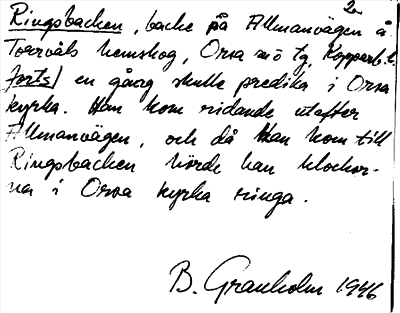 2a
Ringsbacken, backe på Allmanvägen å.
Torrvåls hemskog, Orsa sn o tg, Kopparb. l.
forts) en gång skulle predika i Orsa
kyrka. Han kom ridande utefter
Allmanvägen, och då han kom till
Ringsbacken hörde han klockor-
na i Orsa kyrka ringa.
B. Granholm 1946